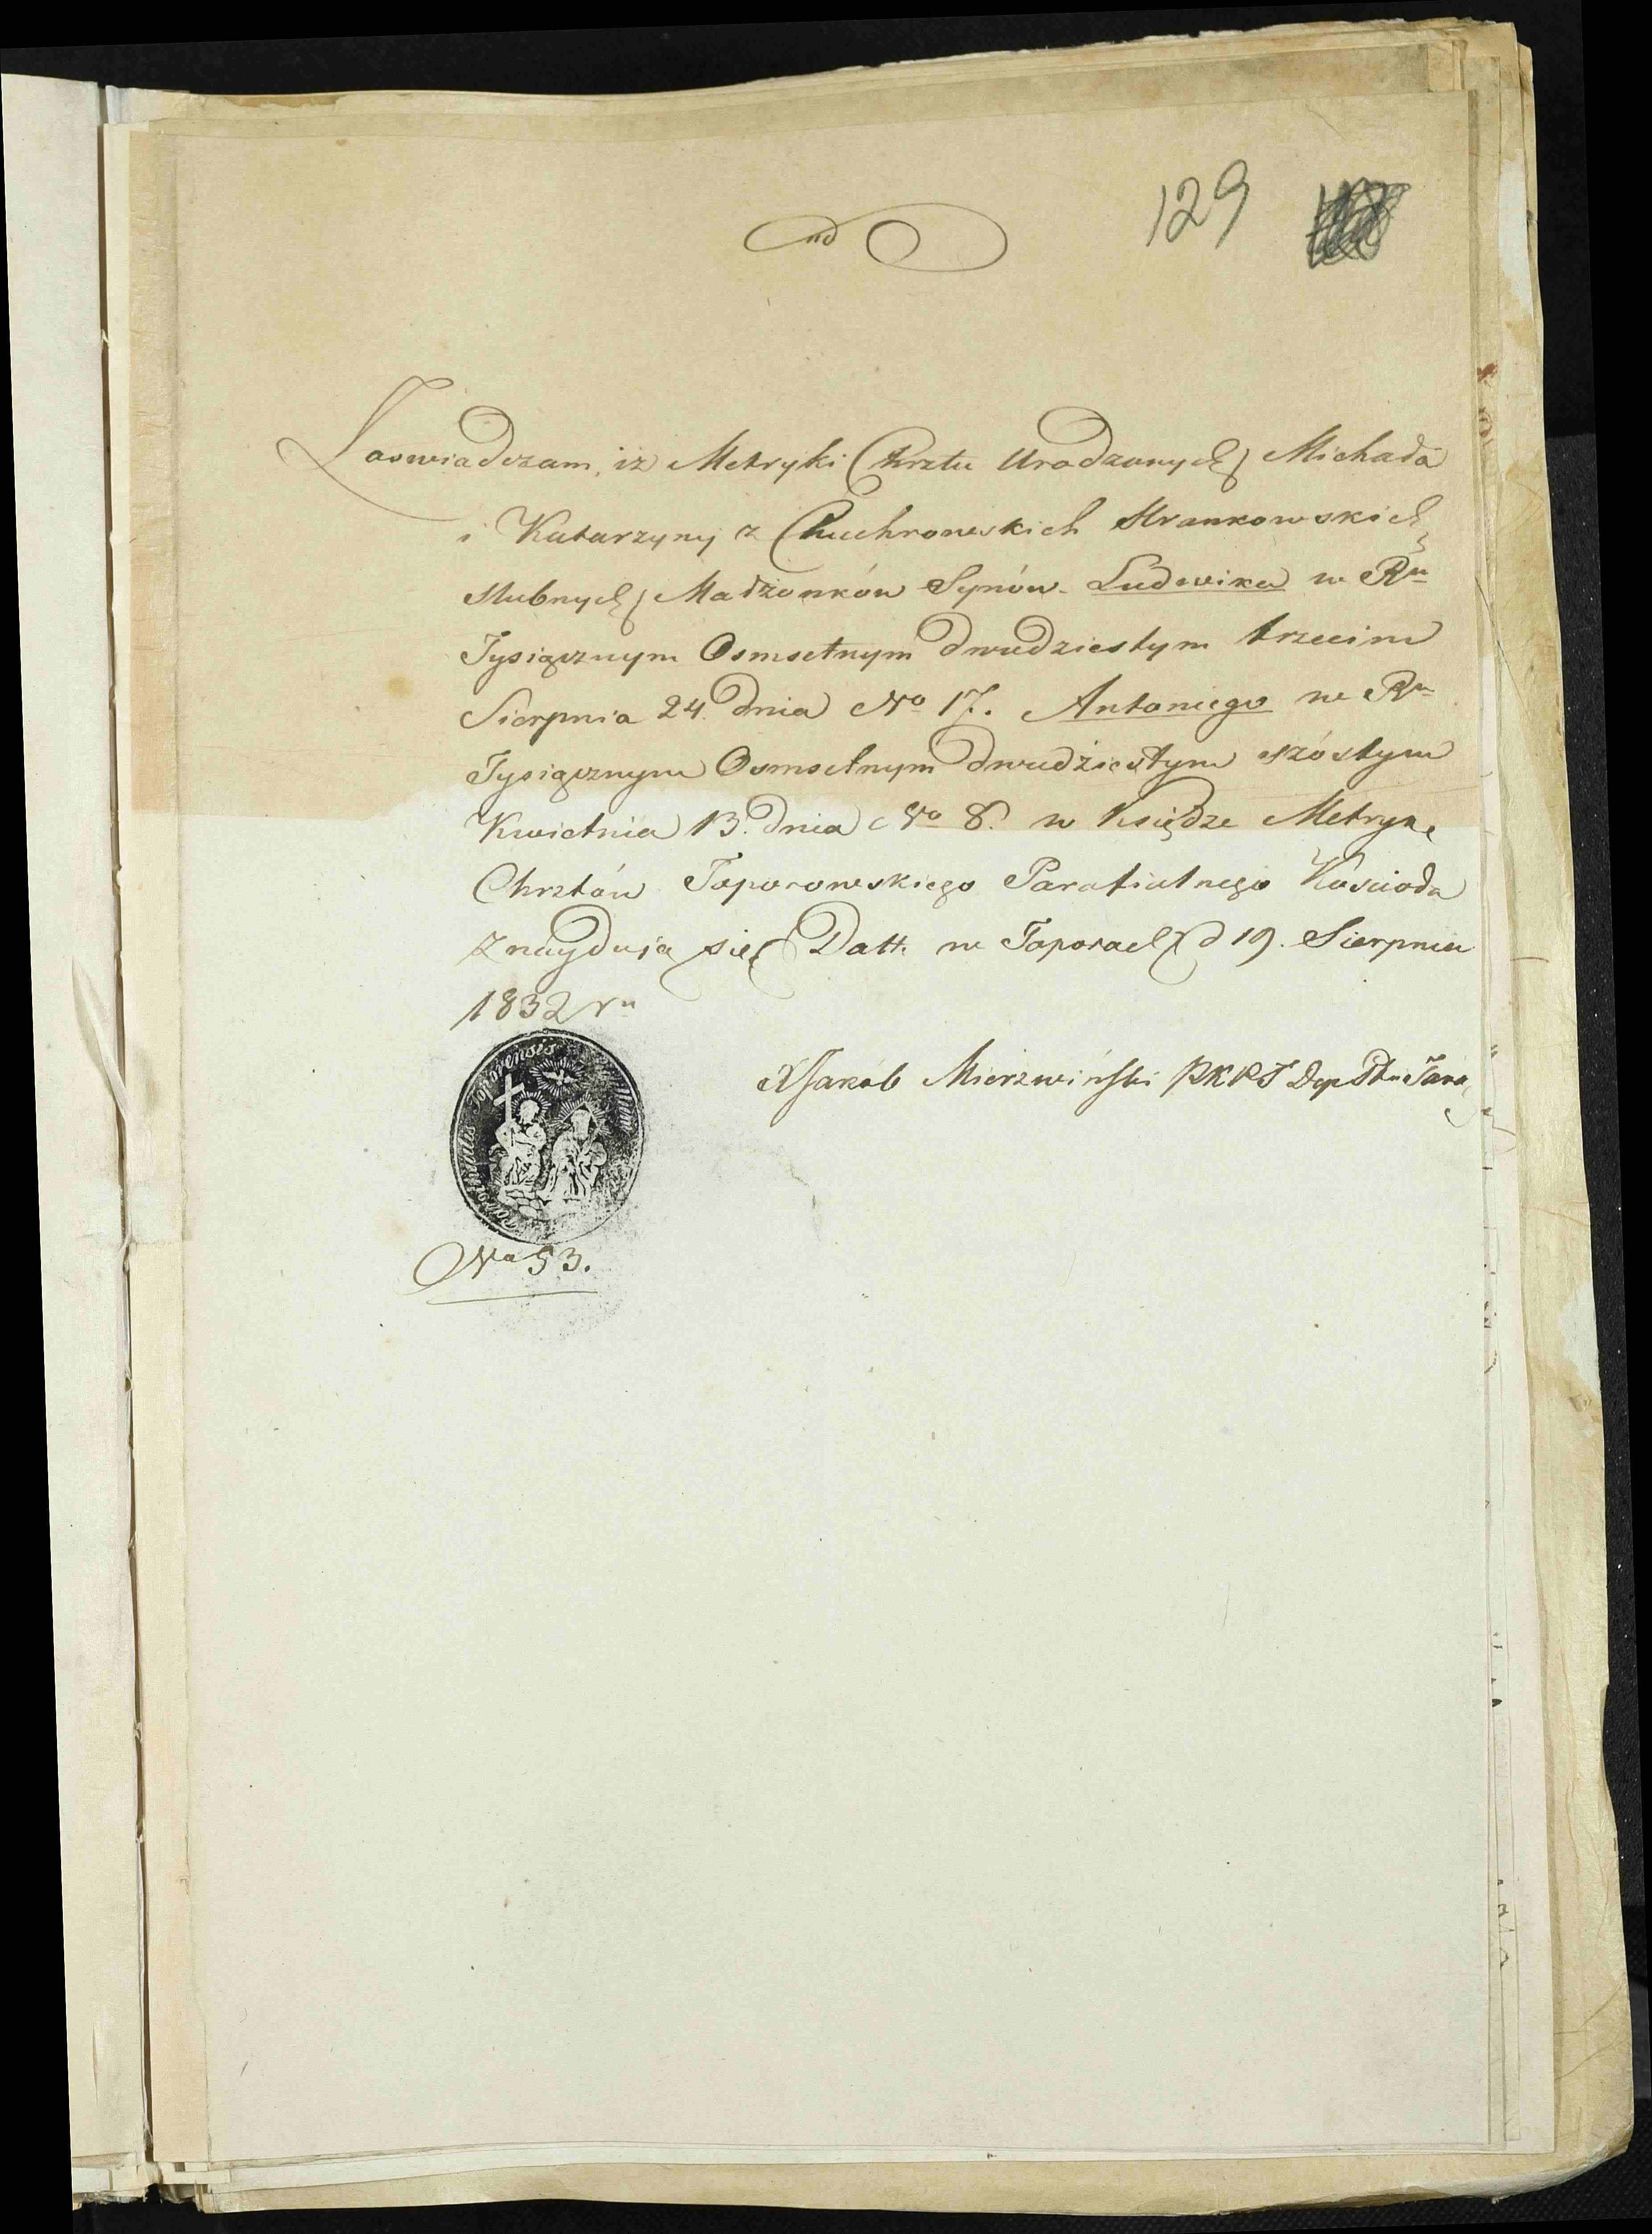 129
Zaswiadczam, iz Metryki Chrztu Urodzonych Michała
i Katarzyny z Chuchrowskich Strankowskich
slubnych Małżonków Synów. Ludwika w Ru
Tysiącznym Osmsetnym dwudziestym trzecim
Sierpnia 24. dnia No 17. Antoniego w Ru
Tysiącznym Osmsetnym dwudziestym szóstym
Kwietnia 13. dnia No 8. w Księdze Metryk
Chrztów Toporowskiego Parafialnego Kościoła
znayduią się. Datt. w Toporach d 19. Sierpnia
1832 ru
X Jakób Mierzwiński PKPT Dep
Toporensis
No 53.